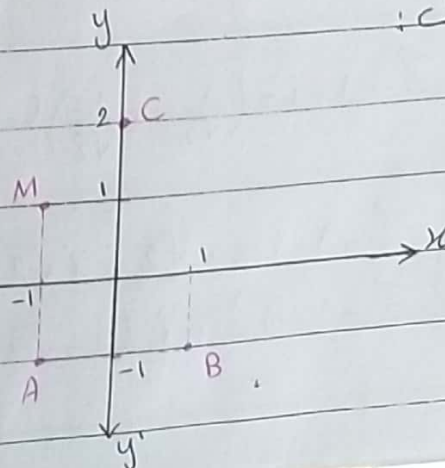 y : C
2 C
M 1
1 x
-1
A -1 B
y'